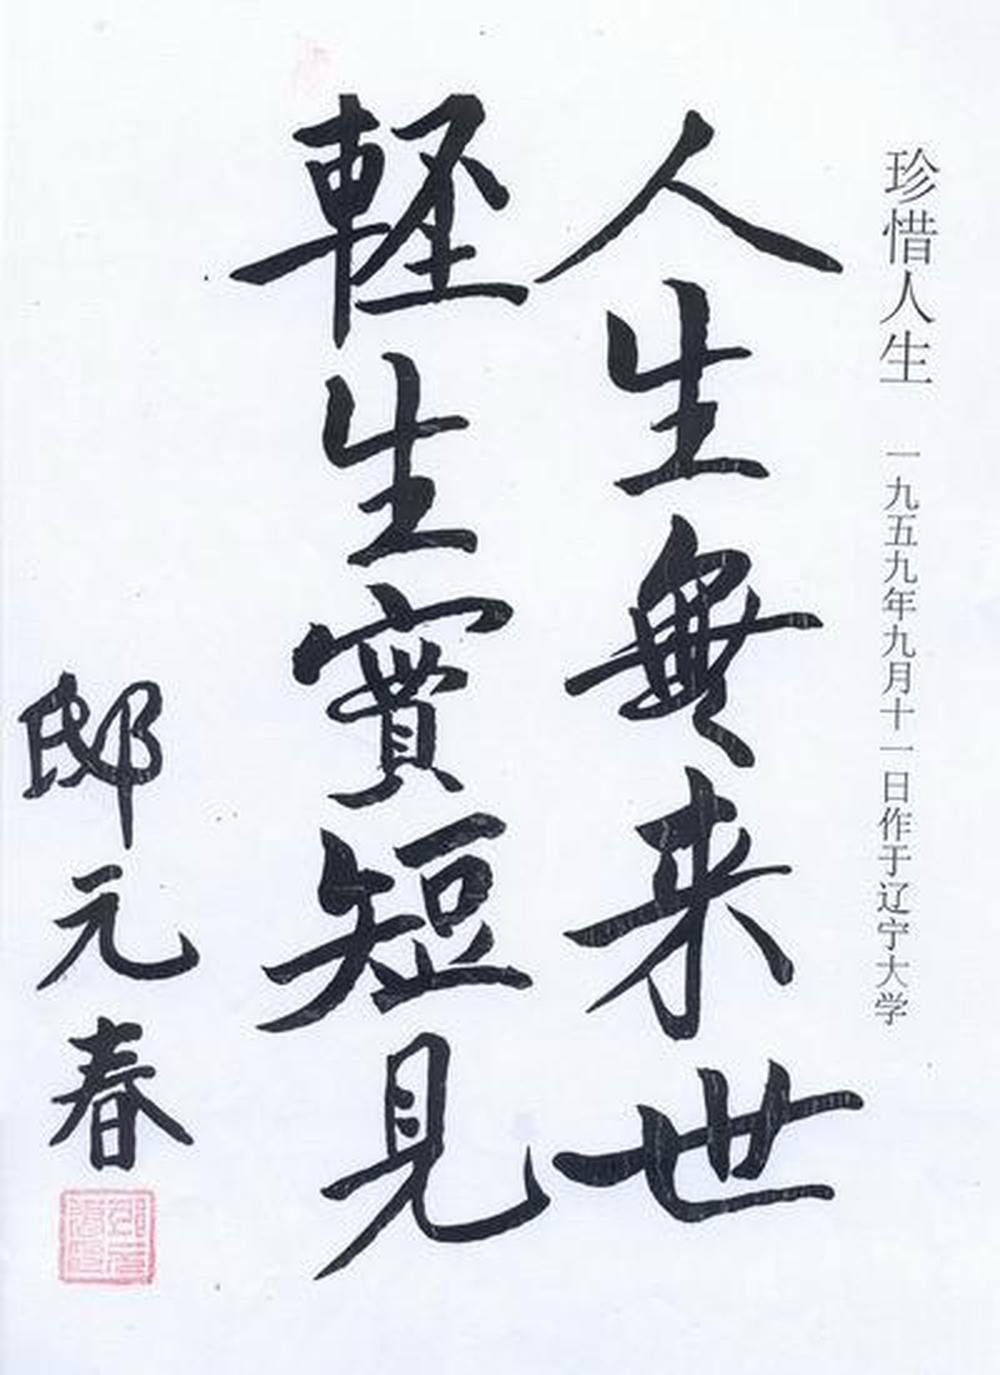 珍惜人生 一九五九年九月十一日作于辽宁大学
人生無来世
軽生實短見
邸元春